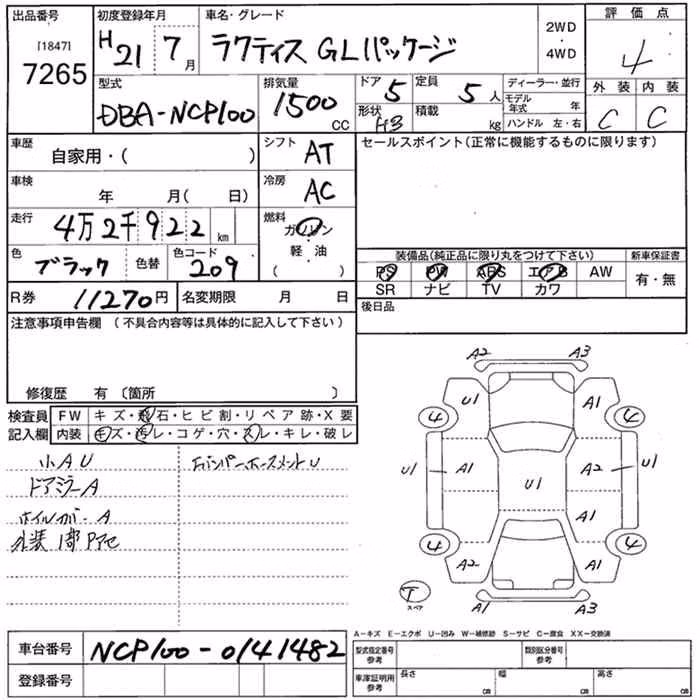 出品番号 初度登録年月 車名・グレード 2WD・4WD 評価点
[1847]
7265 H21 7月 ラクティス GLパッケージ 4
型式 排気量 ドア 5 定員 5人 ディーラー・並行 外装 内装
DBA-NCP100 1500 CC 形状 H3 積載 kg モデル年式 年 C C
ハンドル 左・右
車歴 自家用・( ) シフト AT セールスポイント(正常に機能するものに限ります)
車検 年 月( 日) 冷房 AC
走行 4万2千922 km 燃料 ガソリン
軽・油
( )
色 ブラック 色替 色コード 209 装備品(純正品に限り丸をつけて下さい) 新車保証書
PS PW ABS エアB AW 有・無
SR ナビ TV カワ
R券 11270円 名変期限 月 日 後日品
注意事項申告欄 (不具合内容等は具体的に記入して下さい)
修復歴 有 〔箇所 〕
検査員 FW キズ・飛石・ヒビ割・リペア跡・X要
記入欄 内装 キズ・汚レ・コゲ・穴・スレ・キレ・破レ
小AU
ドアミラーA
ホイルカバーA
外装1部Pアセ
A2 A3
U1 A1
4 4
U1 A1 U1 A2 U1
4 4
A2 A1
T
スペア
A1 A3
A−キズ E−エクボ U−凹み W−補修跡 S−サビ C−腐食 XX−交換済
車台番号 NCP100-0141482 型式指定番号 参考 類別区分番号 参考
登録番号 車庫証明用 参考 長さ cm 幅 cm 高さ cm